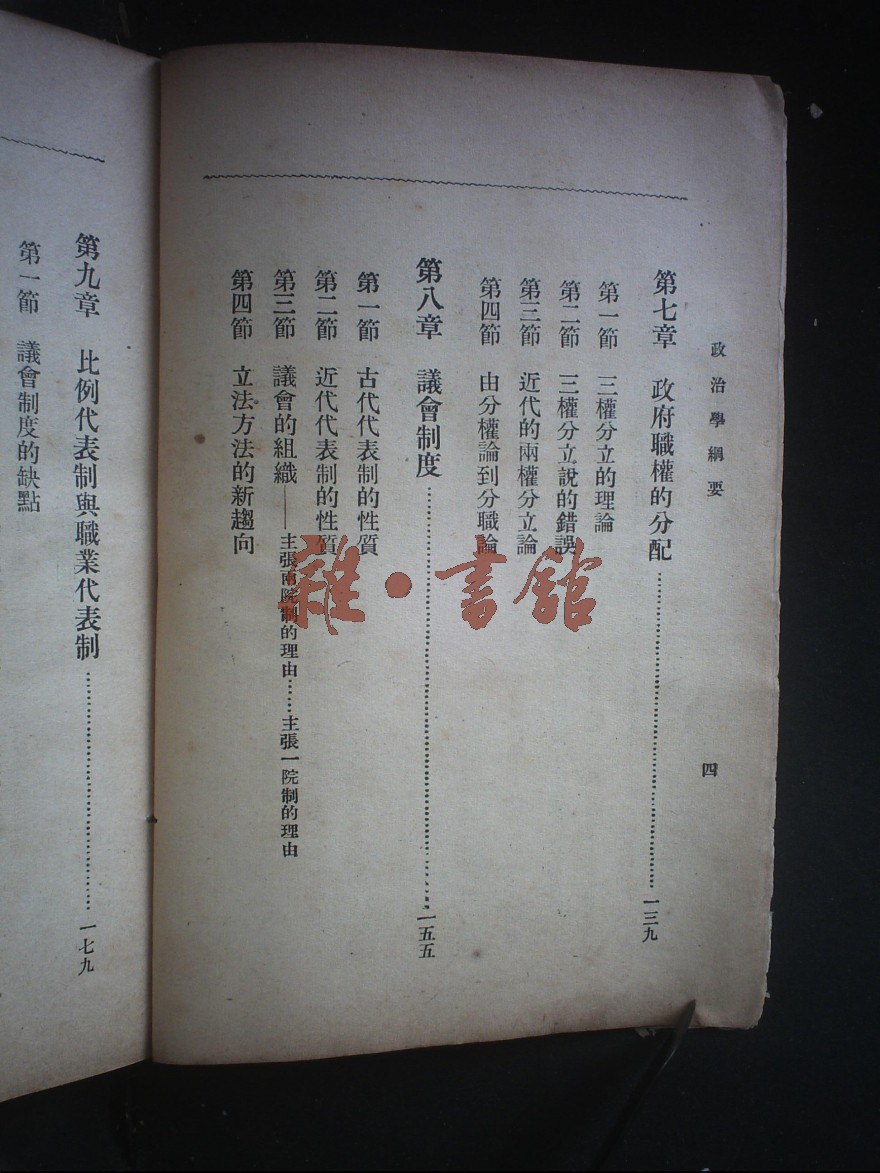 政治學綱要
四
第七章　政府職權的分配……一三九
第一節　三權分立的理論
第二節　三權分立說的錯誤
第三節　近代的兩權分立論
第四節　由分權論到分職論
第八章　議會制度……一五五
第一節　古代代表制的性質
第二節　近代代表制的性質
第三節　議會的組織——主張兩院制的理由……主張一院制的理由
第四節　立法方法的新趨向
第九章　比例代表制與職業代表制……一七九
第一節　議會制度的缺點
雜·書館